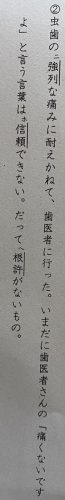 ②虫歯の㋥強烈な痛みに耐えかねて、歯医者に行った。いまだに歯医者さんの「痛くないです
よ」と言う言葉は㋭信頼できない。だって㋬根許がないもの。